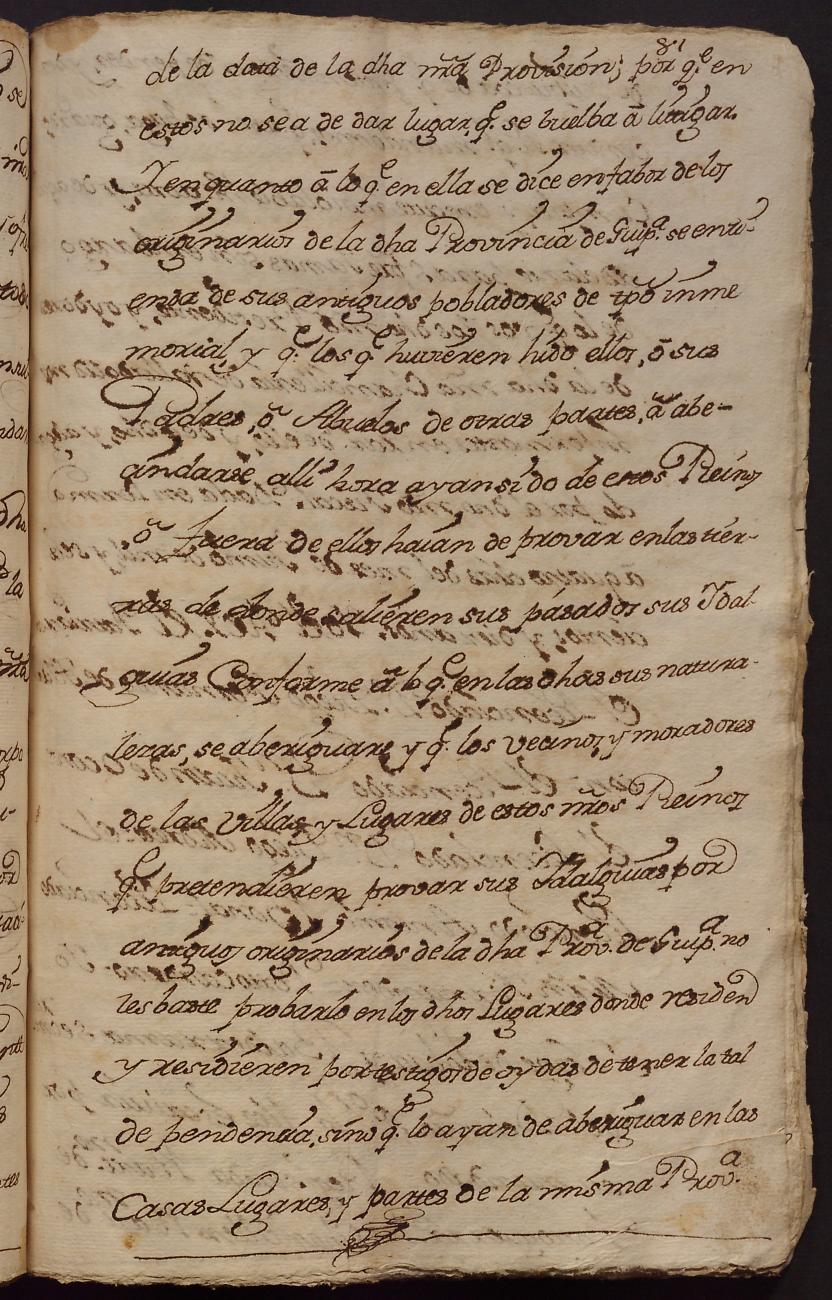 81
de la data de la dha nrã Provisión; por q.e en
estos no se a de dar lugar, q.e se buelba â litigar.
Y en quanto â lo q.e en ella se dice en fabor de los
originarios de la dha Provincia de Guip.a se enti-
enda de sus antiguos pobladores de tpõ inme
morial, y q.e los q.e huvieren hido ellos, ô sus
Padres, ô Abuelos de otras partes, â abe-
cindarse alli hora ayan sido de estos Reinos
ô fuera de ellos haian de provar en las tier-
ras de donde salieren sus pasados sus Ydal-
guias Conforme â lo q.e en las dhas sus natura-
lezas, se aberiguare y q.e los vecinos, y moradores
de las Villas y Lugares de estos nrõs Reinos
q.e pretendieren provar sus Ydalguias por
antiguos originarios de la dha Prov.a de Guip.a no
les baste probarlo en los dhos Lugares donde residen
y residieren por testigos de oydas de tener la tal
dependencia, sino q.e lo ayan de aberiguar en las
Casas Lugares, y partes de la misma Prov.a